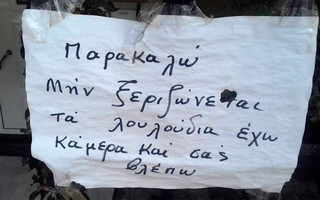 Παρακαλώ
Μήν ξεριζώνεται
τά λουλούδια έχω
κάμερα και σάς
βλέπω